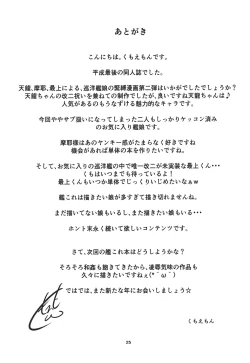 あとがき
こんにちは。くもえもんです。
平成最後の同人誌でした。
天龍、摩耶、最上による、巡洋艦娘の緊縛漫画第二弾はいかがでしたでしょうか?
天龍ちゃんの改二祝いを兼ねての制作でしたが、良いですね天龍ちゃんは♪
人気があるのもうなずける魅力的なキャラです。
今回ややサブ扱いになってしまった二人もしっかりケッコン済み
のお気に入り艦娘です。
摩耶様はあのヤンキー感がたまらなく好きですね
機会があれば単体の本を作りたいですね。
そして、お気に入りの巡洋艦の中で唯一改二が未実装な最上くん・・・
くもはいつまでも待っているよ!
最上くんもいつか単体でじっくりいじめたいなぁw
艦これは描きたい娘が多すぎて描き切れませんね。
まだ描いてない娘もいるし、また描きたい娘もいるし・・・
ホント末永く続いて欲しいコンテンツです。
さて、次回の艦これ本はどうしようかな?
そろそろ和姦も飽きてきたから、凌辱気味の作品も
久々に描きたいですねぇ(*´ω`)
ではでは、また新たな年にお会いしましょう☆
くもえもん